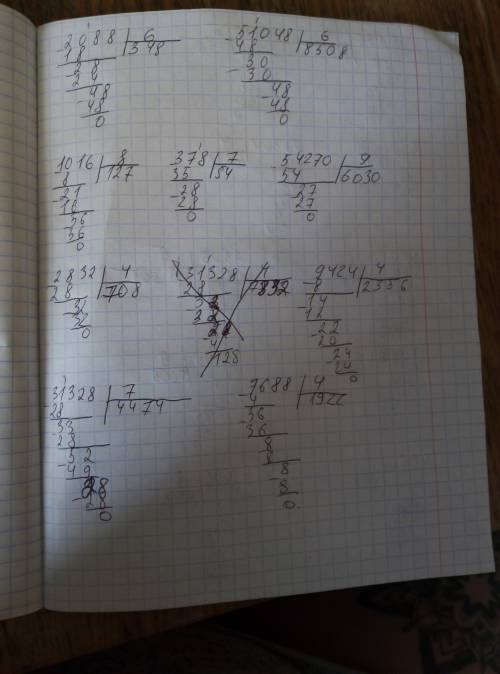 2088 6
- 18 348
- 28
24
- 48
48
0
51048 6
- 48 8508
30
- 30
- 48
48
0
1016 8
8 127
- 21
16
- 56
56
0
378 7
35 54
- 28
28
0
- 54270 9
54 6030
- 27
27
0
2832 4
- 28 708
32
32
0
31328 4
- 28 7832
128
- 9424 4
8 2356
- 14
12
- 22
20
- 24
24
0
31328 7
- 28 4474
- 33
28
- 52
49
- 28
28
0
- 7688 4
4 1922
- 36
36
- 8
8
- 8
8
0